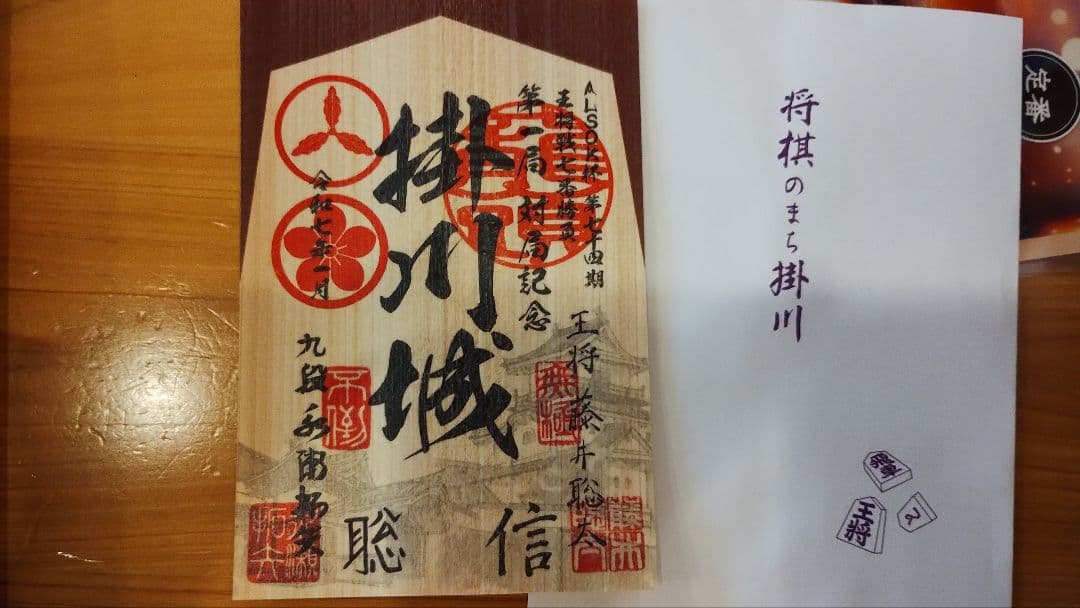 ALSOK杯第七十四期
王将戦七番勝負
第一局 対局記念
掛川城
令和七年一月
王将 藤井聡太
九段 永瀬拓矢
無極
不倒
信
聡
将棋のまち掛川
王将
定番